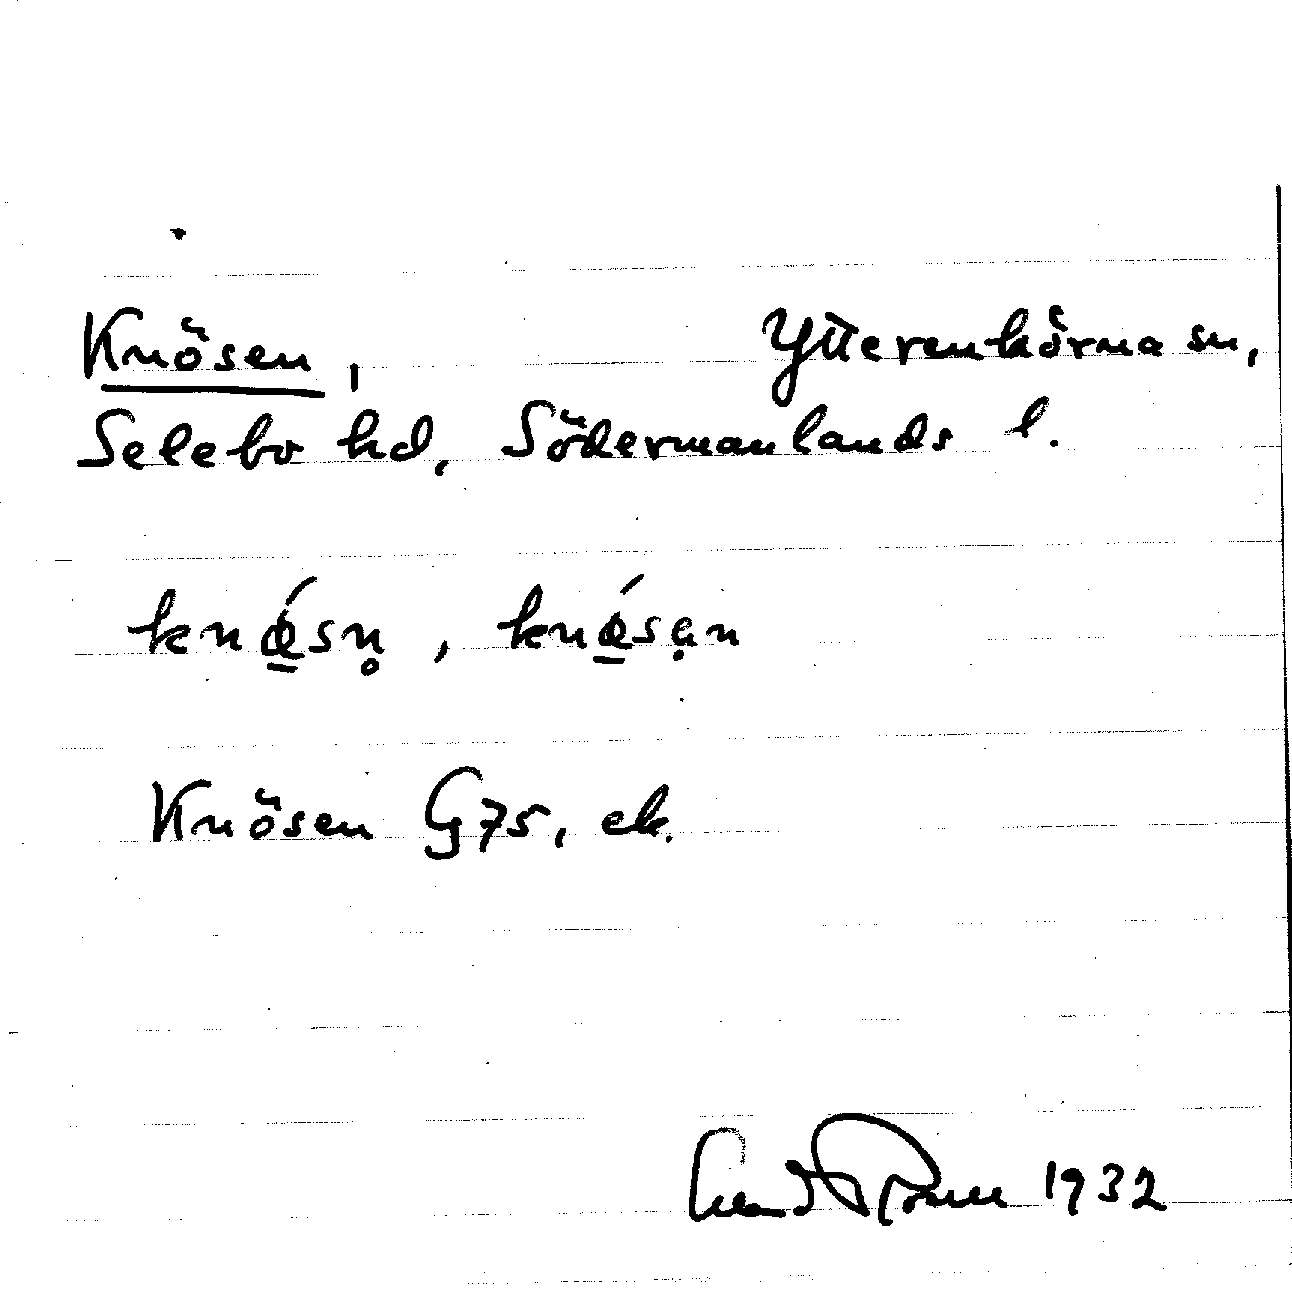 Knösen, Ytterenhörna sn,
Selebo hd, Södermanlands l.
knǿ̲sn̥, knǿ̲sạn
Knösen G75, ek.
1932